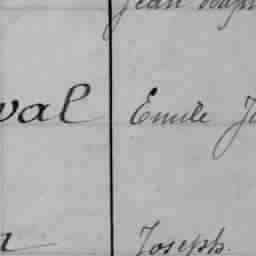 Jean Bap
val Emile J
Joseph